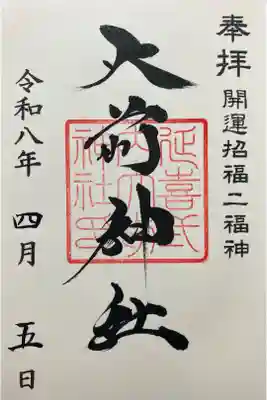 奉拝 開運招福二福神
大前神社
延喜式
神社印
令和八年 四月 五日